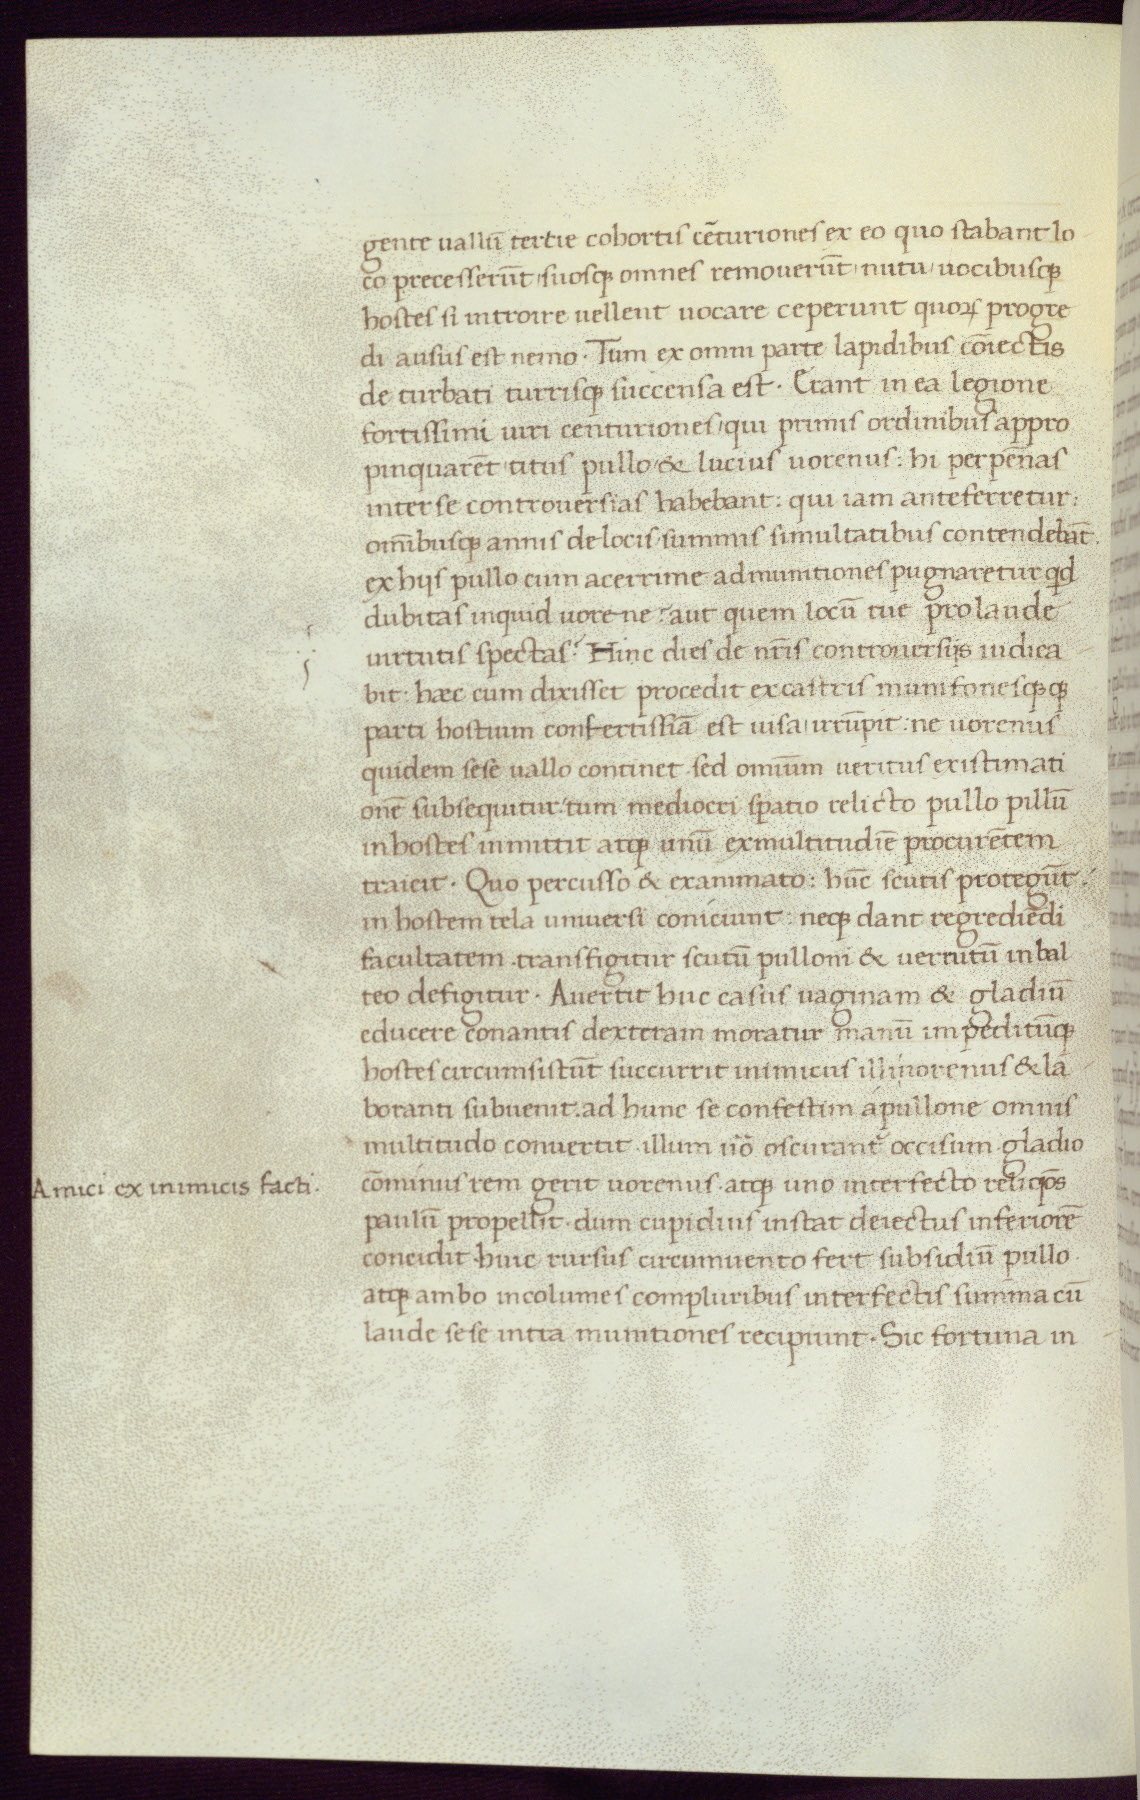 gente uallū tertie cohortis cēturiones ex eo quo stabant lo
co precesserūt suosqꝫ omnes remouerūt nutu uocibusqꝫ
hostes si introire uellent uocare ceperunt quoꝝ progre
di ausus est nemo. Tum ex omni parte lapidibus cōiectis
de turbati turrisqꝫ succensa est. Erant in ea legione
fortissimi uiri centuriones qui primis ordinibus appro
pinquarēt titus pullo & lucius uorenus: hi perpēnas
inter se controuersias habebant: qui iam anteferretur:
om̄ibusqꝫ annis de locis summis simultatibus contendebāt.
ex hijs pullo cum acerrime ad munitiones pugnaretur qͥd
dubitas inquid uorene: aut quem locū tue pro laude
uirtutis spectas? Hinc dies de nr̄is controuersijs iudica
bit: hæc cum dixisset procedit ex castris munitonesqꝫ qꝫ
parti hostium confertissīa est uisa irrūpit: ne uorenus
quidem sese uallo continet sed omiūm ueritus existimati
onē subsequitur tum mediocri spatio relicto pullo pillū
in hostes inmittit atqꝫ unū ex multitudīe procurētem
traicit. Quo percusso & exanimato: hūc scutis protegūt
in hostem tela uniuersi coniciunt: neqꝫ dant regrediēdi
facultatem. transfigitur scutū pulloni & uerrutū in bal
teo defigitur. Auertit huc casus uaginam & gladiū
educere conantis dexteram moratur manū impeditūqꝫ
hostes circumsistūt succurrit inimicus illi uorenus & la
boranti subuenit. ad hunc se confestim a pullone omnis
multitudo conuertit. illum uō oscurant occisum. gladio
Amici ex inimicis facti.
cōminus rem gerit uorenus. atqꝫ uno interfecto reliqͦs
paulū propellit. dum cupidius instat deiectus inferiorē
concidit huic rursus circumuento fert subsidiū pullo.
atqꝫ ambo incolumes compluribus interfectis summa cū
laude sese intra munitiones recipiunt. Sic fortuna in